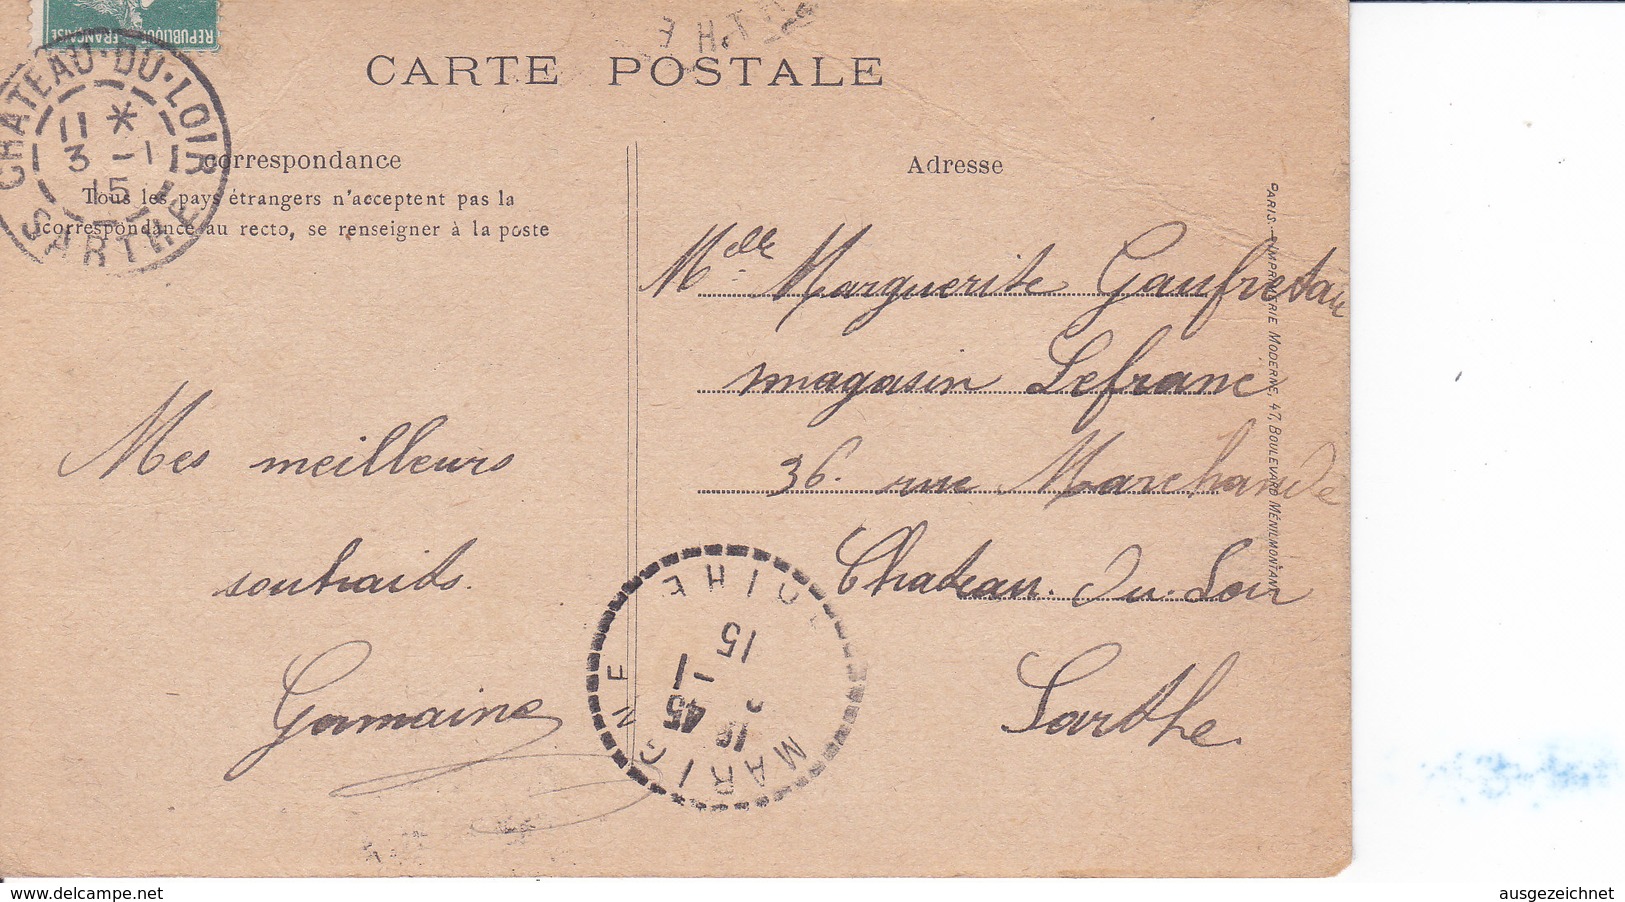 REPUBLIQUE FRANÇAISE
CHATEAU-DU-LOIR
11 *
3 - 1
15
SARTHE
CARTE POSTALE
Correspondance
Tous les pays étrangers n'acceptent pas la
correspondance au recto, se renseigner à la poste
Mes meilleurs
souhaits.
Germaine
Adresse
Melle Marguerite Gaufretau
magasin Lefranc
36. rue Marchande
Chateau. du. Loir
Sarthe.
MARIGNE
45
-1
15
PARIS. - IMPRIMERIE MODERNE, 47, BOULEVARD MÉNILMONTANT
www.delcampe.net
ausgezeichnet